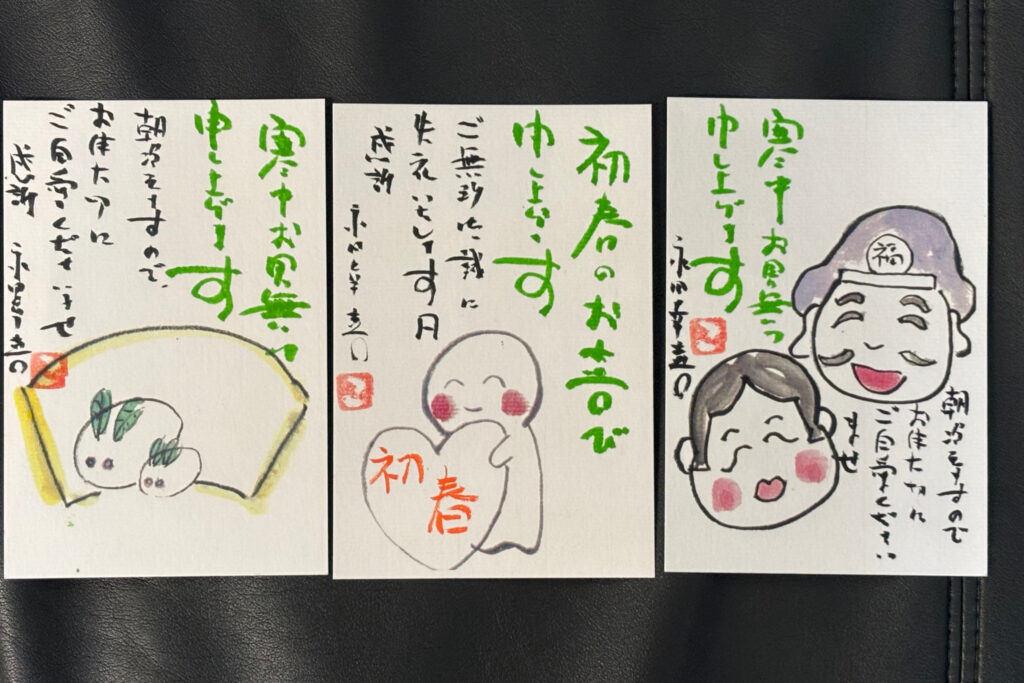 寒中お見舞い
申し上げます
朝冷えますので、
お体大切に
ご自愛くださいませ
感謝
初春のお喜び
申し上げます
ご無沙汰誠に
失礼いたします
感謝
初春
寒中お見舞い
申し上げます
福
朝冷えますので
お体大切に
ご自愛ください
ませ